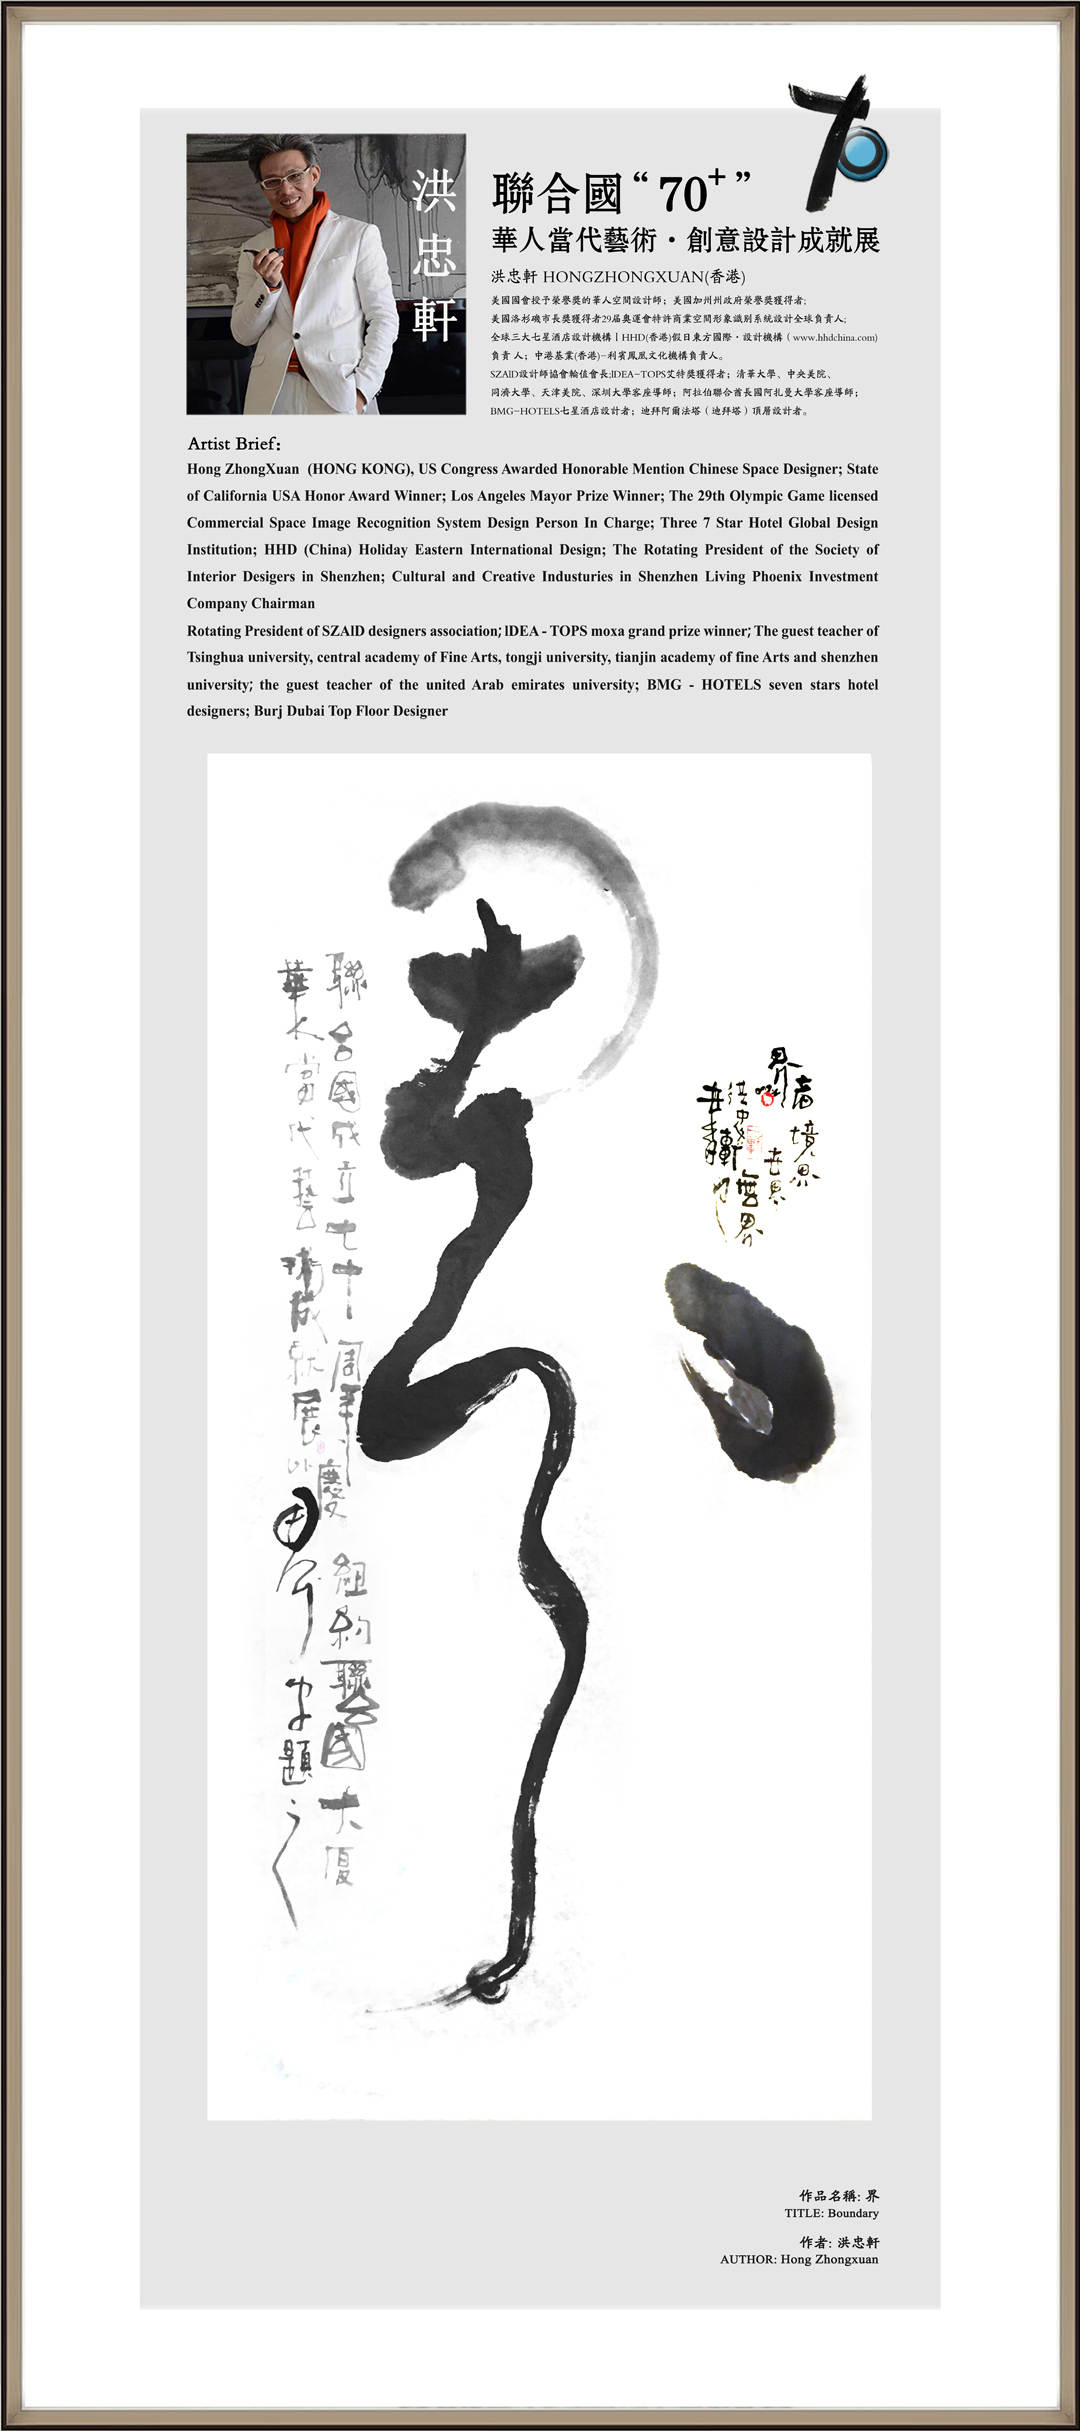 洪忠軒
70
聯合國“70+”
華人當代藝術·創意設計成就展
洪忠軒 HONGZHONGXUAN(香港)
美國國會授予榮譽獎的華人空間設計師；美國加州州政府榮譽獎獲得者;
美國洛杉磯市長獎獲得者29届奥運會特許商業空間形象識别系統設計全球負責人;
全球三大七星酒店設計機構丨HHD(香港)假日東方國際·設計機構（www.hhdchina.com)
負責人；中港基業(香港)-利賓鳳凰文化機構負責人。
SZAID設計師協會輪值會長;IDEA-TOPS艾特獎獲得者；清華大學、中央美院、
同濟大學、天津美院、深圳大學客座導師；阿拉伯聯合酋長國阿扎曼大學客座導師；
BMG-HOTELS七星酒店設計者；迪拜阿爾法塔（迪拜塔）頂層設計者。
Artist Brief:
Hong ZhongXuan (HONG KONG), US Congress Awarded Honorable Mention Chinese Space Designer; State
of California USA Honor Award Winner; Los Angeles Mayor Prize Winner; The 29th Olympic Game licensed
Commercial Space Image Recognition System Design Person In Charge; Three 7 Star Hotel Global Design
Institution; HHD (China) Holiday Eastern International Design; The Rotating President of the Society of
Interior Desigers in Shenzhen; Cultural and Creative Industuries in Shenzhen Living Phoenix Investment
Company Chairman
Rotating President of SZAlD designers association; lDEA - TOPS moxa grand prize winner; The guest teacher of
Tsinghua university, central academy of Fine Arts, tongji university, tianjin academy of fine Arts and shenzhen
university; the guest teacher of the united Arab emirates university; BMG - HOTELS seven stars hotel
designers; Burj Dubai Top Floor Designer
聯合國成立七十周年慶 紐約聯合國大厦
華人當代藝術成就展
界
題
境界
世界
無界
洪忠軒
作品名稱: 界
TITLE: Boundary
作者: 洪忠軒
AUTHOR: Hong Zhongxuan